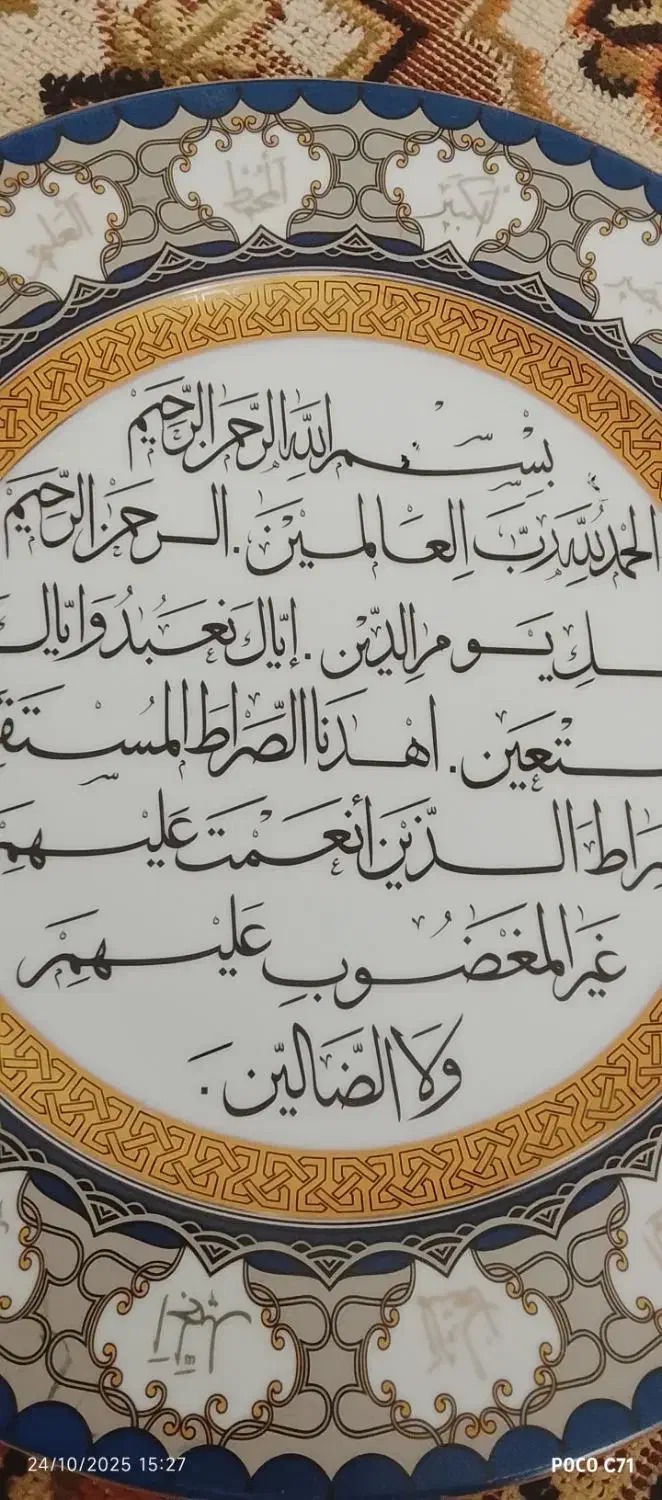 العليم الحفيظ الكبير
بسم الله الرحمن الرحيم
الحمد لله رب العالمين . الرحمن الرحيم
ـلك يوم الدين . إياك نعبد وإياك
ـتعين . اهدنا الصراط المستقـ
ـراط الذين أنعمت عليهم
غير المغضوب عليهم
ولا الضالين .
24/10/2025 15:27
POCO C71